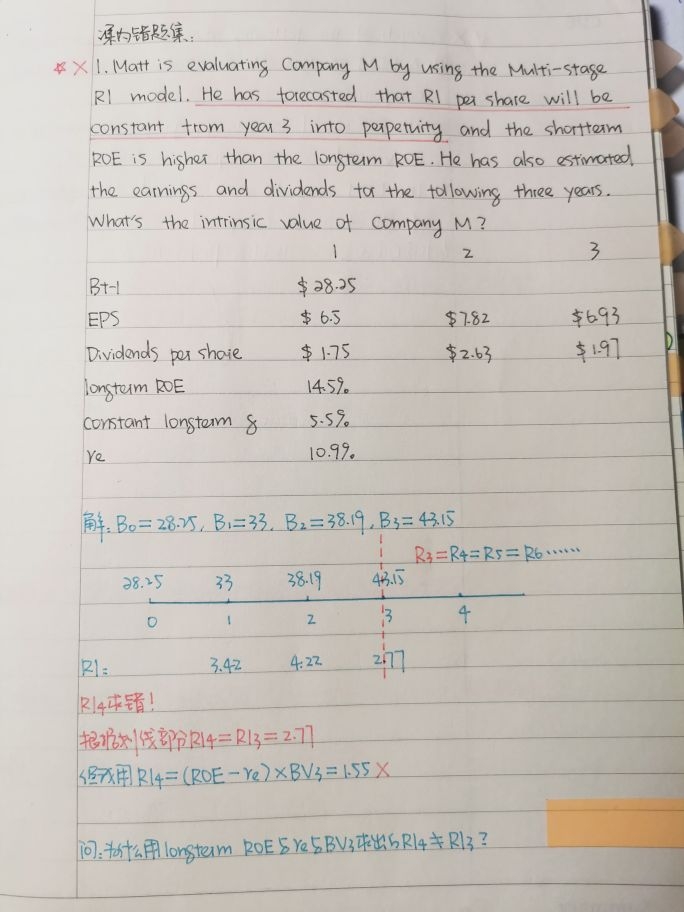 课内错题集:
☆ × 1. Matt is evaluating Company M by using the Multi-stage
RI model. He has forecasted that RI per share will be
constant from year 3 into perpetuity and the shortterm
ROE is higher than the longterm ROE. He has also estimated
the earnings and dividends for the following three years.
What's the intrinsic value of Company M?
1 2 3
Bt-1 $28.25
EPS $6.5 $7.82 $6.93
Dividends per share $1.75 $2.63 $1.97
longterm ROE 14.5%
constant longterm g 5.5%
re 10.9%
解: B0=28.25, B1=33, B2=38.19, B3=43.15
R3=R4=R5=R6……
28.25 33 38.19 43.15
0 1 2 3 4
RI: 3.42 4.22 2.77
RI4求错!
根据划线部分RI4=RI3=2.77
但我用RI4=(ROE-re)×BV3=1.55 ×
问:为什么用longterm ROE与re与BV3求出的RI4≠RI3?